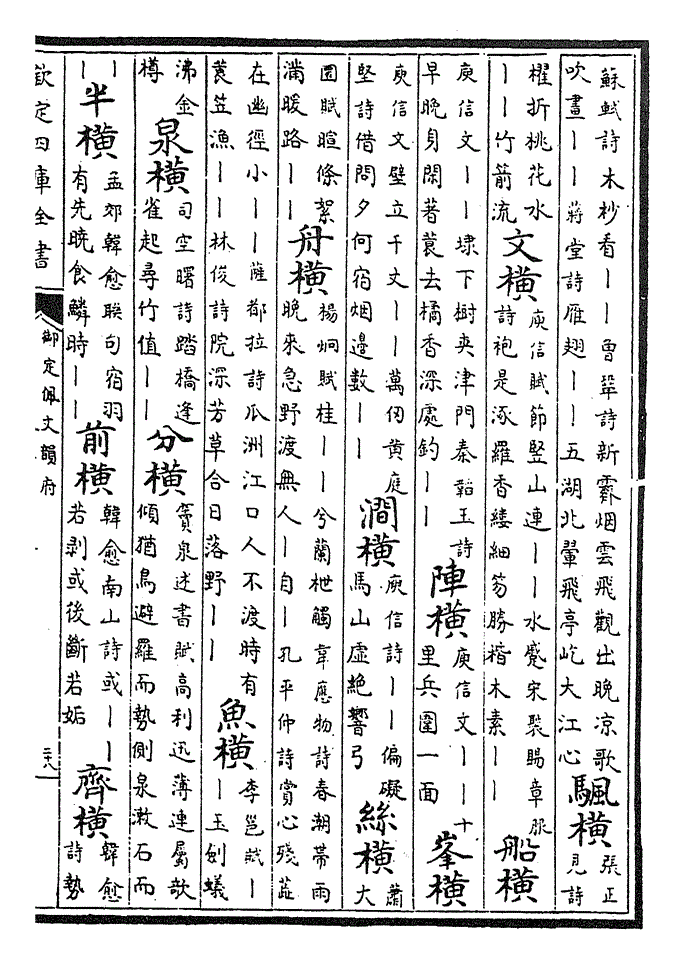 蘇軾詩木杪看丨丨曾鞏詩新霽烟雲飛觀出晚涼歌吹畫丨丨蔣堂詩雁翅丨丨五湖北翬飛亭屹大江心颿橫張正見詩
櫂折桃花水丨丨竹箭流文橫庾信賦節竪山連丨丨水蹙宋裴賜章服詩袍是逐羅香縷細笏勝楷木素丨丨船橫
庾信文丨丨埭下樹夾津門秦韜玉詩早晚身閑著蓑去橘香深處釣丨丨陣橫庾信文丨丨十里兵圍一面峯橫
庾信文壁立千丈丨丨萬仞黄庭堅詩借問夕何宿烟邊數丨丨澗橫庾信詩丨丨偏礙馬山虛絶響弓絲橫蕭大
圜賦暄條絮滿暖路丨丨舟橫楊炯賦桂丨丨兮蘭枻觸韋應物詩春潮帶雨晚來急野渡無人丨自丨孔平仲詩賞心殘
在幽徑小丨丨薩都拉詩瓜洲江口人不渡時有蓑笠漁丨丨林俊詩院深芳草合日落野丨丨魚橫李邕賦丨丨玉劍蟻
沸金樽泉橫司空曙詩踏橋逢雀起尋竹值丨丨分橫竇泉述書賦高利迅薄連屬欹傾猶鳥避羅而勢側泉漱石而
丨丨半橫孟郊韓愈聯句宿羽有先曉食鱗時丨丨前橫韓愈南山詩或丨丨若剥或後斷若姤齊橫韓愈詩勢
欽定四庫全書
御定佩文韻府
二十八